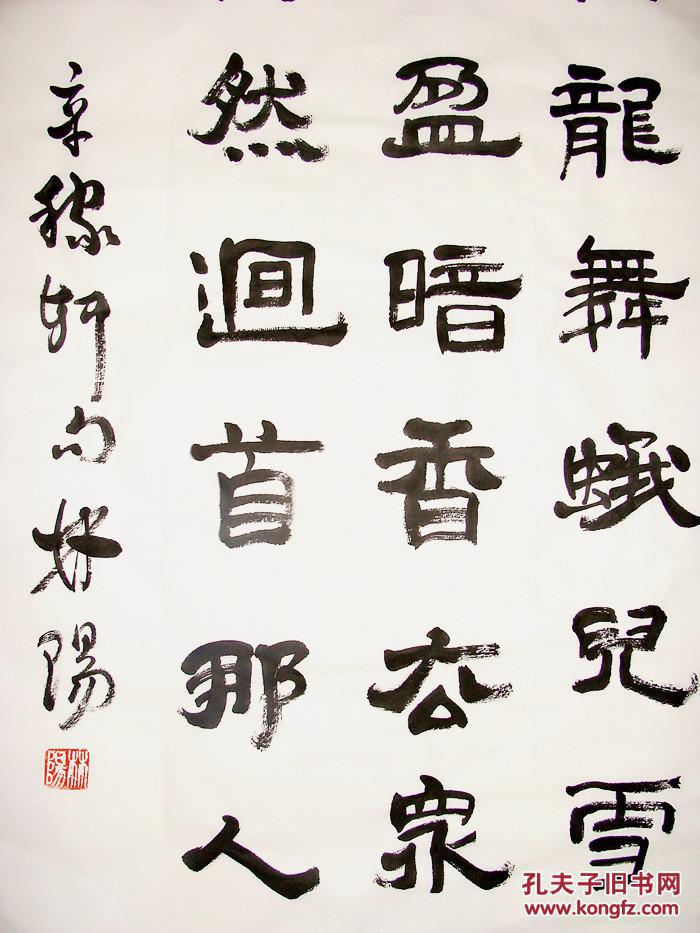 龍舞蛾兒雪
盈暗香去衆
然迴首那人
辛稼軒句林陽
林陽
孔夫子旧书网
www.kongfz.com